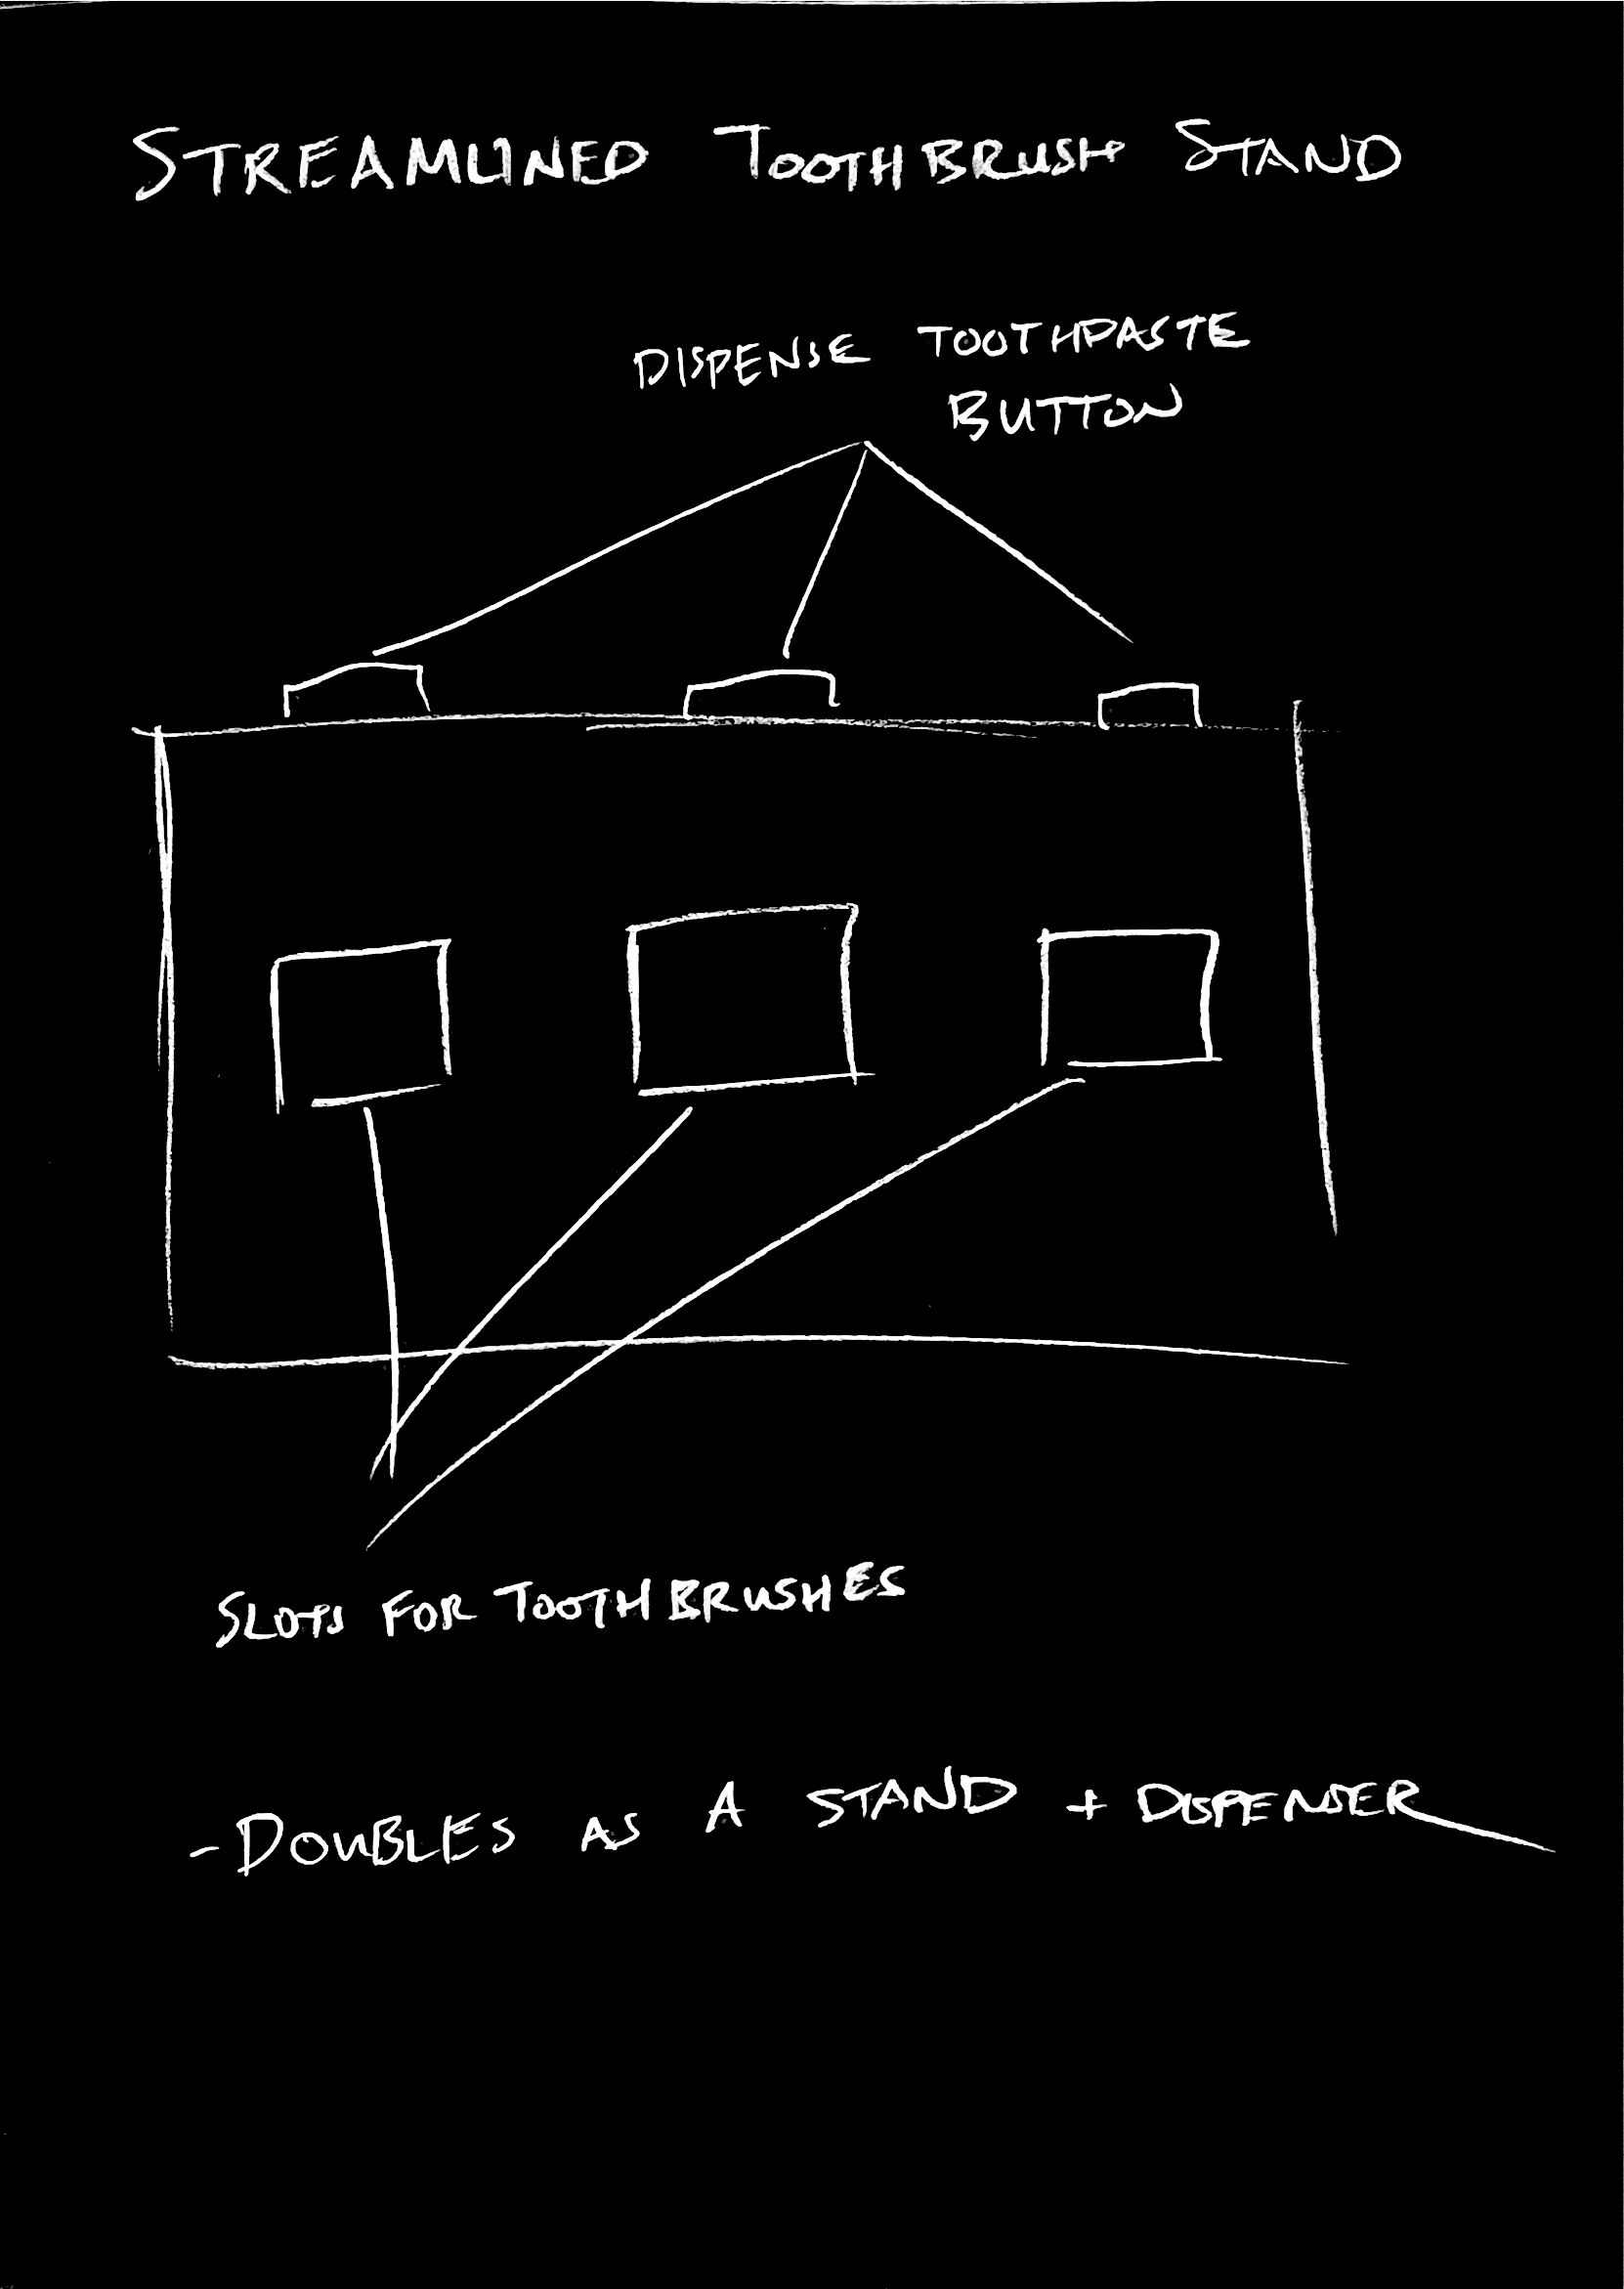 STREAMLINED TOOTHBRUSH STAND
DISPENSE TOOTHPASTE
BUTTON
SLOTS FOR TOOTHBRUSHES
- DOUBLES AS A STAND + DISPENSER